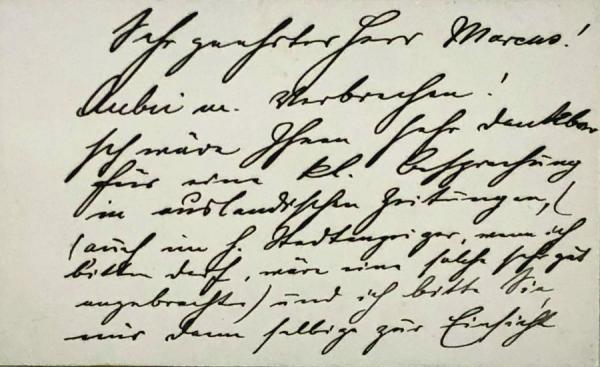 Sehr geehrter Herr Marcus!
Anbei m. Verbrechen!
Ich wäre Ihnen sehr dankbar
für eine kl. Besprechung
in ausländischen Zeitungen, (
(auch im h. Stadtanzeiger, wenn ich
bitten darf, wäre eine solche sehr gut
angebracht) und ich bitte Sie
mir dann selbige zur Einsicht